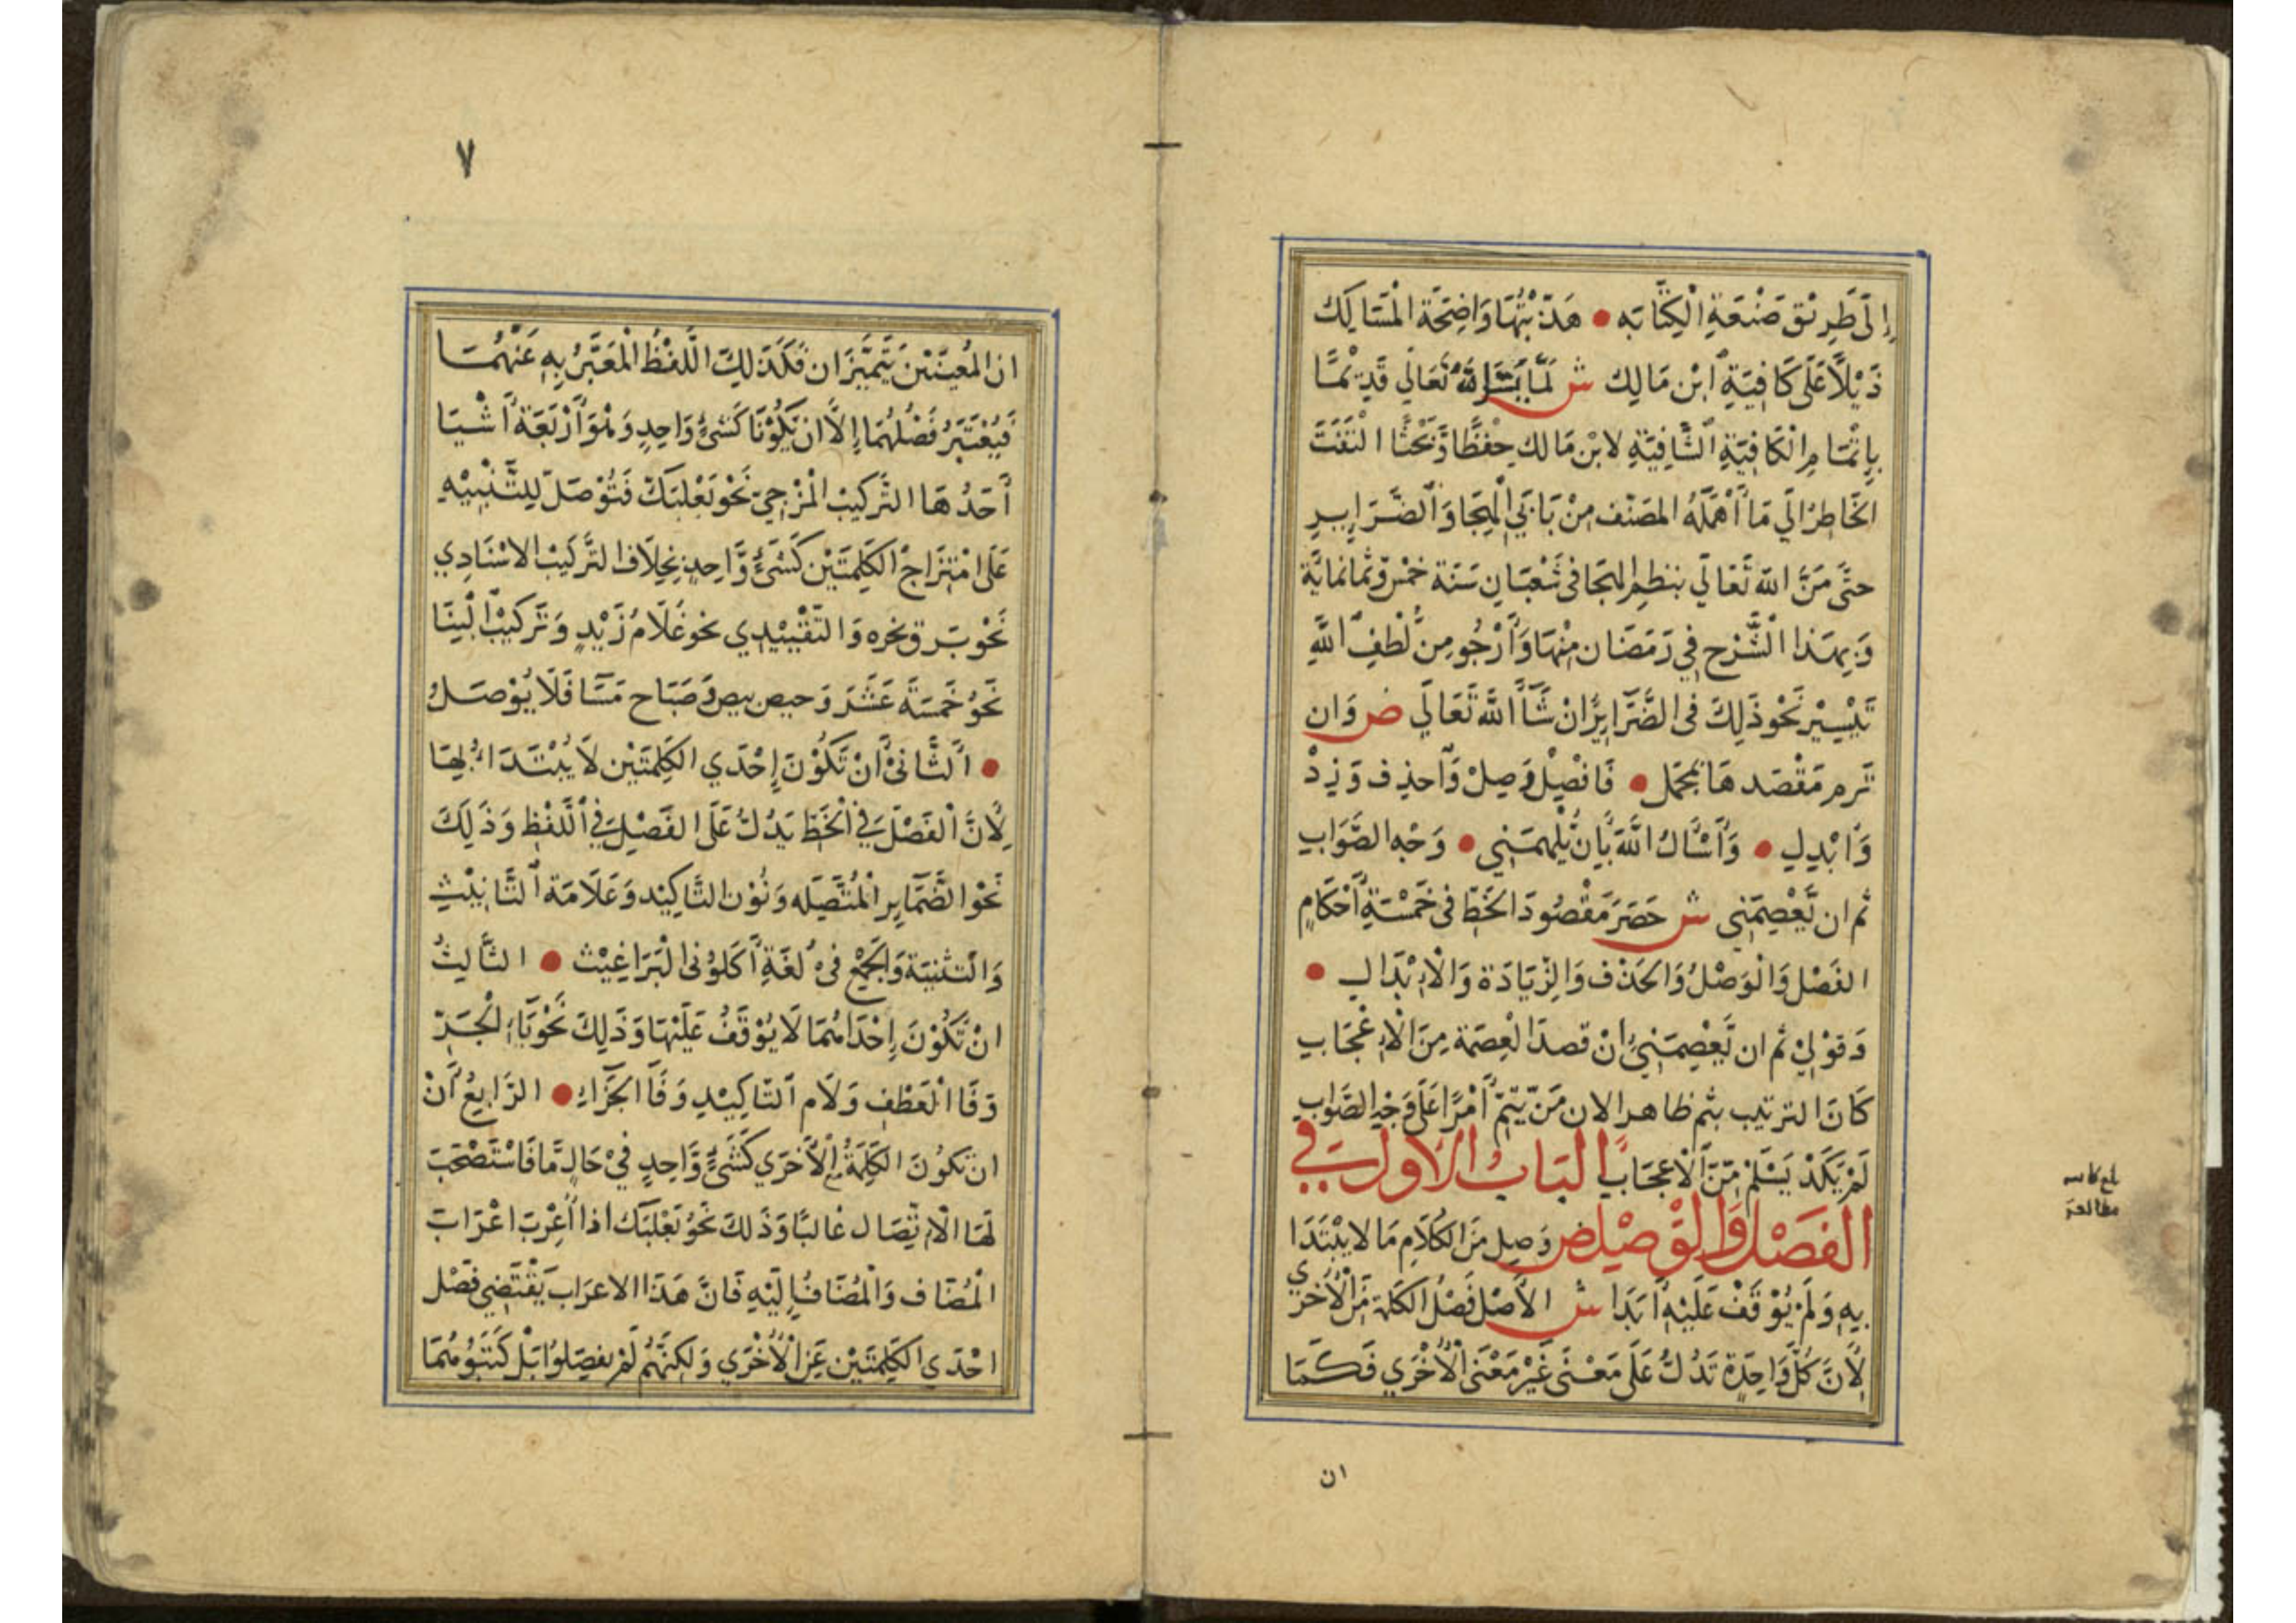 إِلَى طَرِيْقِ صَنْعَةِ الْكِتَابَه ● هَذَّبْتُهَا وَاضِحَةَ الْمَسَالِك
ذَيْلاً عَلَى كَافِيَةِ ابْنِ مَالِك ش لَمَّا يَسَّرَ اللهُ تَعَالَى قَدِيْمًا
بِإِتْمَامِ الْكَافِيَةِ الشَّافِيَةِ لابْنِ مَالك حِفْظًا وَبَحْثًا الْتَفَتَ
الْخَاطِرُ إِلَى مَا أَهْمَلَهُ المصَنْف مِنْ بَابَيِ الْهِجَا وَالضَّرَايِرِ
حتَّى مَنَّ الله تَعَالَي بنظم الهجَا فى شَعْبَان سَنَة خمْس وثمانمايَة
وَبِهَذا الْشَّرْح فِي رَمَضَان مِنْهَا وَأَرْجُو مِنْ لُطْفِ اللهِ
تَيْسِيْر نَحْو ذَلِكَ فى الضَّرَايِر إِنْ شَآ اللهُ تَعَالَي ص وَان
تَرم مَقْصَد هَا بمجمَل ● فَافْصِلْ وَصِلْ وَاحذِف وَزِدْ
وَابْدِلِ ● وَأَسْأَلُ اللهَ بِأَنْ يُلْهِمَنِي ● وَجْه الصَّوَابِ
ثم ان يَعْصِمَنِي ش حَصَرَ مَقْصُودَ الخَطِّ فى خَمْسَةِ أَحْكَامٍ
الفَصْل وَالْوَصْلُ وَالحَذْف وَالزِّيَادَة وَالْإبْدَالِ ●
وَقوْلِيْ ثم ان يَعْصِمَنِيْ إنْ قصدَ الْعِصْمَة مِنَ الْإعْجَابِ
كَانَ الترتيب بثم ظاهرا لان مَنْ يُتِمُّ أَمْرًا عَلَى وَجْهِ الصَّوَابِ
لَمْ يَكَدْ يَسْلَمْ مِنَ الْإعجَابِ الْبَابُ الْاَولُ فِي
الْفَصْلِ وَالْوَصْلِ ص وَصِلْ مِنَ الكَلاَمِ مَا لا يُبْتَدَا
بِهِ وَلَمْ يُوْقَفْ عَلَيْهِ أَبَدَا ش الأَصْل فَصْلُ الكَلمَة مِنَ الْأُخْرَي
لِأَنَّ كُلَّ وَاحِدَةٍ تَدُلُّ عَلَى مَعْنَى غَيْر مَعْنَى الْأُخْرَي فَكَمَا
ان
٧
ان المُعيَّنَيْن يَتَمَيَّزَان فَكَذَلِكَ اللَّفْظُ الْمُعَبَّرُ بِهِ عَنْهُمَا
فَيُعْتَبَرُ فَصْلُهُمَا إِلاَّ ان يَكُوْنَا كَشَىْءٍ وَاحِدٍ وَهُوَ أَرْبَعَةُ أَشْيَا
أَحَدُ هَا التَّركِيْب الْمَزْجِيّ نَحْو بَعْلَبَكّ فَتُوْصَلُ لِلتَّنْبِيْهِ
عَلَى امْتِزَاجِ الكَلِمَتَيْن كَشَىْءٍ وَّاحِدٍ بِخِلَاف التَّركِيْب الاسْنَادِي
نَحْو بَرق نحره وَالتَّقْيِيْدِي نحو غُلَامُ زَيْدٍ وَتَركيْب الْبِنَا
نَحْوُ خَمْسَةَ عَشَرَ وَحيص بيص وَصَبَاح مَسَا فَلَا يُوْصَلُ
● الثَّانىْ أَنْ تَكُوْنَ إِحْدَي الكَلِمَتَيْن لاَ يُبْتَدَاُ بِهَا
لِأَنَّ الْفَصْلَ فِي الْخَطِّ يَدُلُّ عَلَى الفَصْلِ فِي اللَّفْظِ وَذَلِكَ
نَحْو الضَّمَايِر الْمُتَّصِلَه وَنُوْن التَّاكِيْد وَعَلَامَة التَّانِيْثِ
وَالْتَثنيَة وَالجَمْع فى لُغَةِ أَكَلُوْنى الْبَرَاغِيْث ● الثَّالِثُ
انْ تَكُوْنَ إِحْدَاهُمَا لَا يُوْقَفُ عَلَيْهَا وَذَلِكَ نَحْو بَاءِ الْجَرّ
وَفَا الْعَطْفِ وَلَام التَّاكِيْدِ وَفَا الجَزَاءِ ● الرَّابِعُ أَنْ
ان تكُونَ الكَلِمَةُ مع الْأُخرَي كَشَىْءٍ وَّاحِدٍ فِيْ حَالٍ مَّا فَاسْتَصْحَبَ
لَهَا الْاتِّصَال غالبًا وَذَلكَ نَحْوُ بَعْلَبَكّ اذا أُعْرِبَ اعْرَابَ
الْمُضَاف وَالْمُضَافُ إِلَيْهِ فَانَّ هَذَا الاعرَاب يَقْتَضِي فَصْل
احْدَى الكَلِمَتَيْن عَنِ الْأُخْرَي وَلكِنَّهُمْ لَمْ يفصِلُوا بَلْ كَتَبُوهُمَا